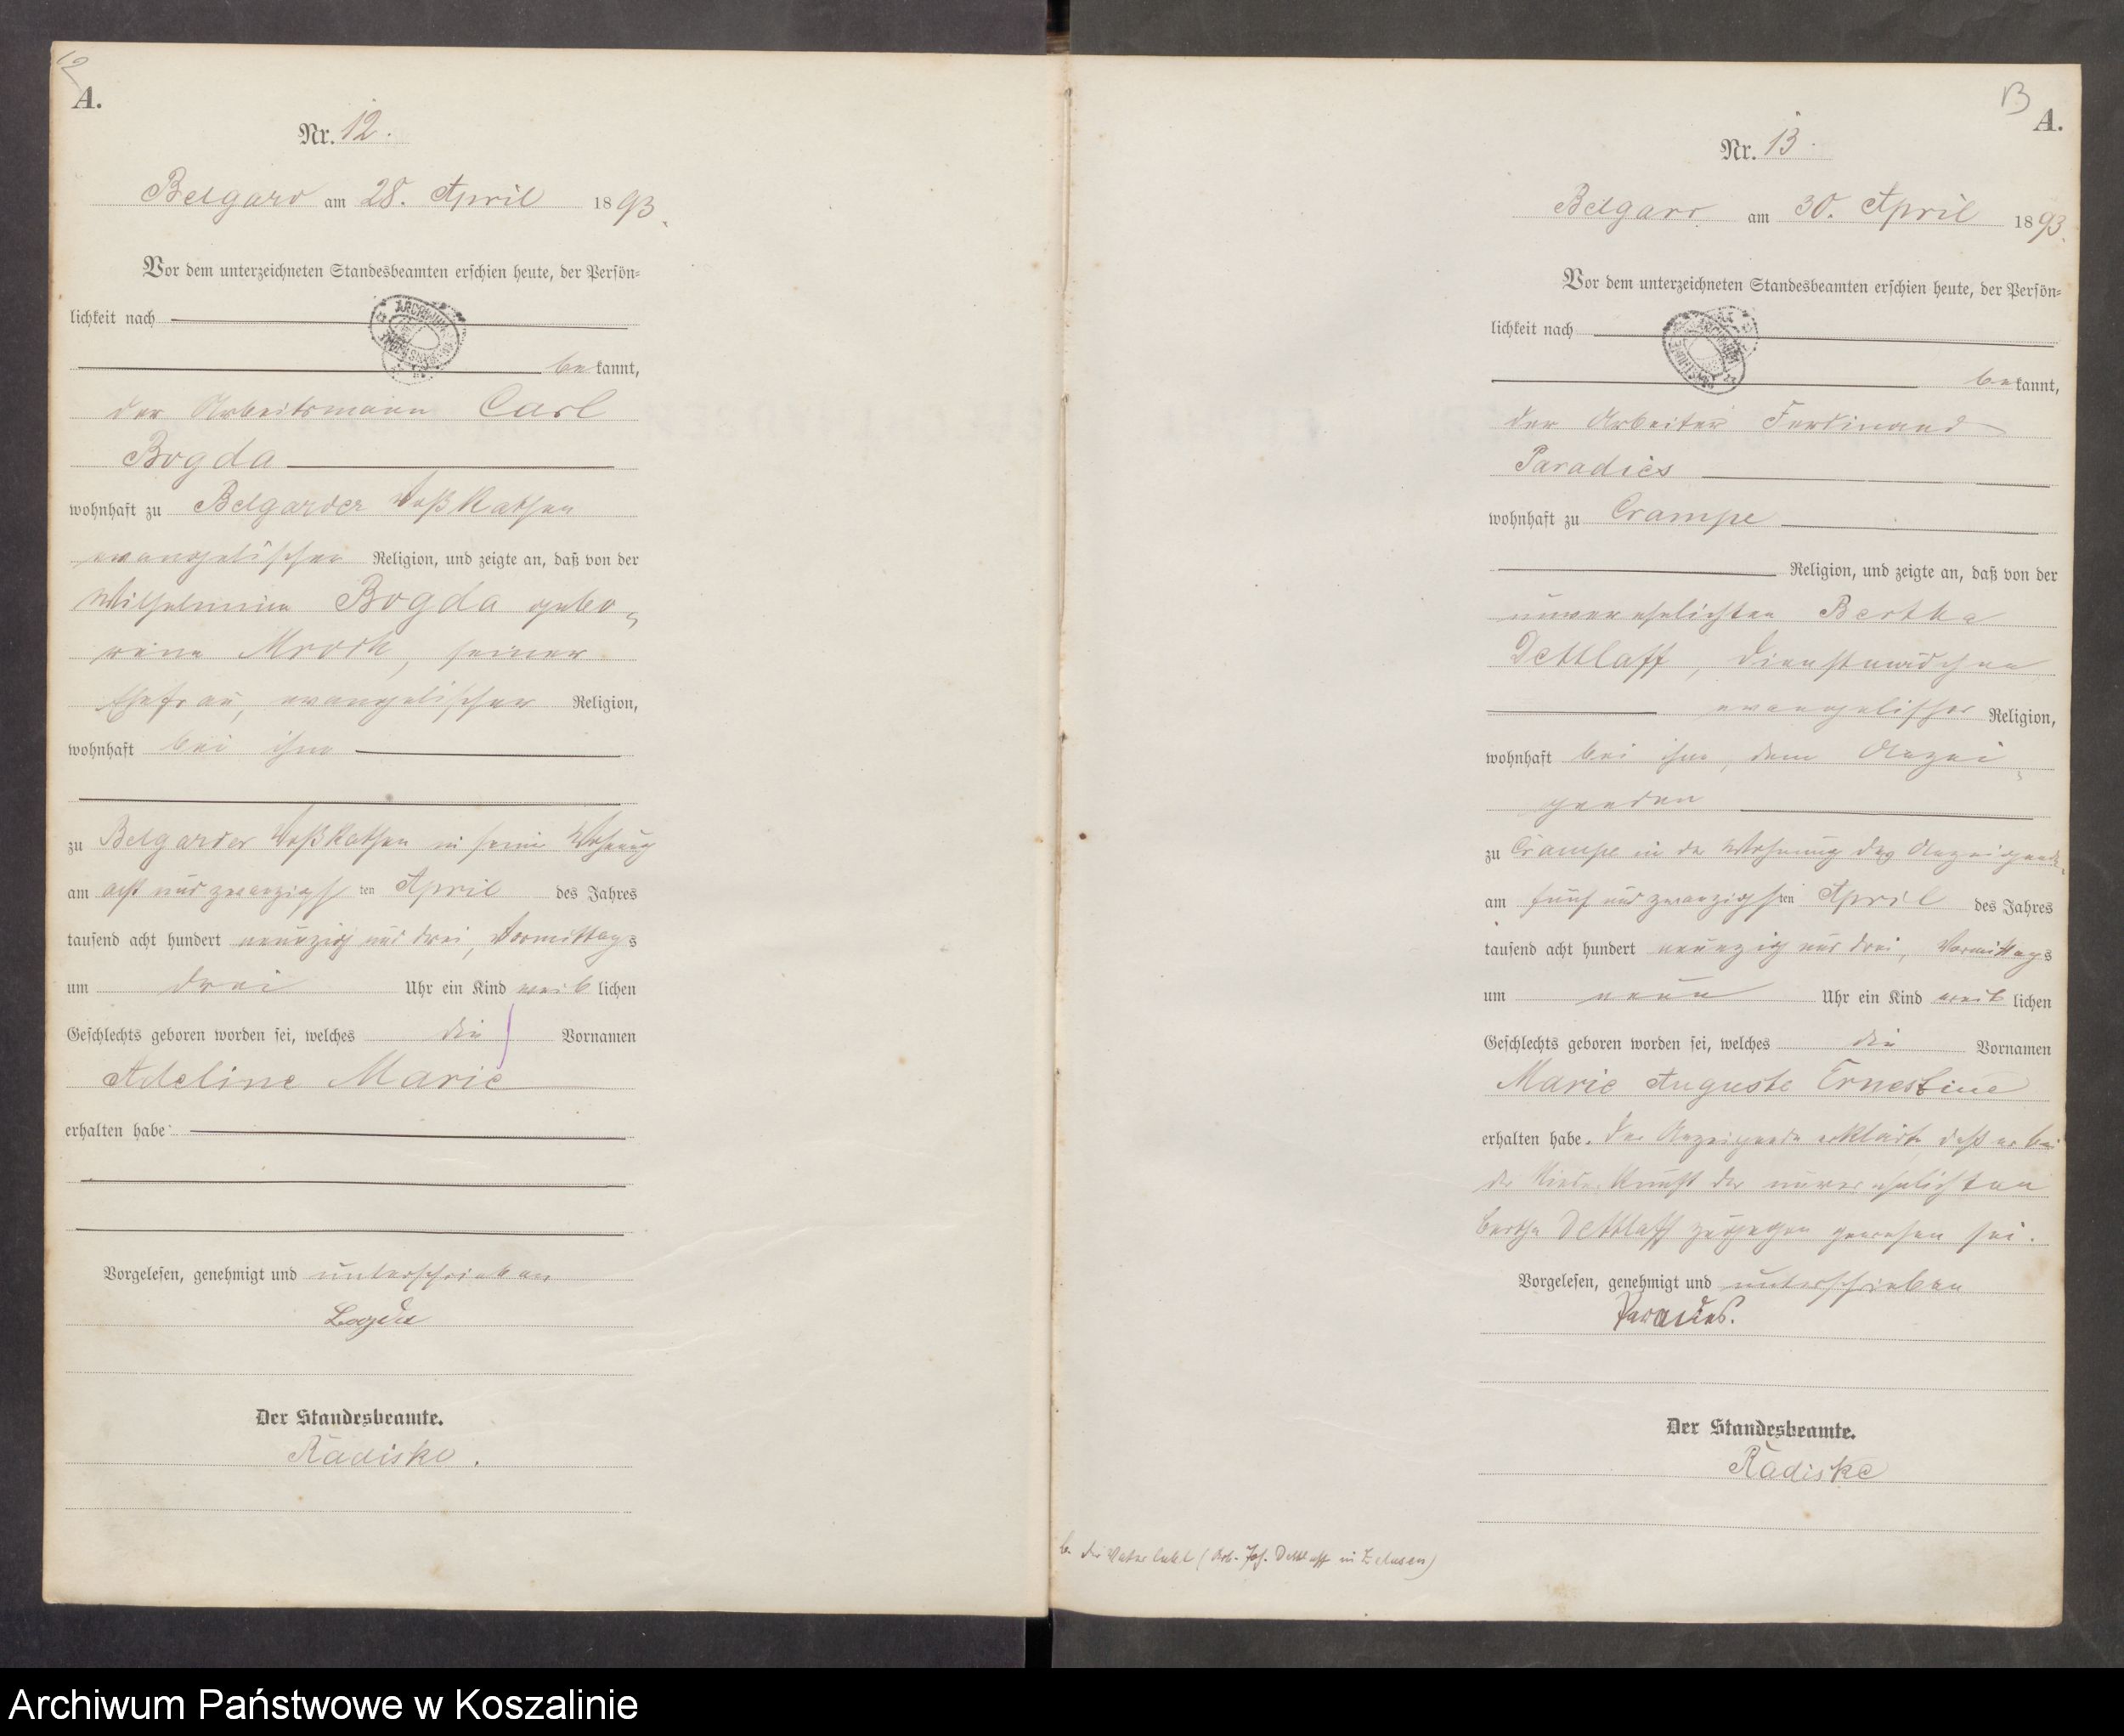 12
A.
Nr. 12.
Belgard am 28. April 1893.
Vor dem unterzeichneten Standesbeamten erschien heute, der Persön=
lichkeit nach
bekannt,
der Arbeitsmann Carl
Bogda
wohnhaft zu Belgarder Voßkathen
evangelischer Religion, und zeigte an, daß von der
Wilhelmine Bogda gebo-
rene Mrock, seiner
Ehefrau, evangelischer Religion,
wohnhaft bei ihm
zu Belgarder Voßkathen in seiner Wohnung
am acht und zwanzigsten April des Jahres
tausend acht hundert neunzig und drei, Vormittags
um drei Uhr ein Kind weiblichen
Geschlechts geboren worden sei, welches die Vornamen
Adeline Marie
erhalten habe
Vorgelesen, genehmigt und unterschrieben
Bogda
Der Standesbeamte.
Radiske.
13
A.
Nr. 13.
Belgard am 30. April 1893.
Vor dem unterzeichneten Standesbeamten erschien heute, der Persön=
lichkeit nach
bekannt,
der Arbeiter Ferdinand
Paradies
wohnhaft zu Crampe
Religion, und zeigte an, daß von der
unverehelichten Bertha
Dettlaff, Dienstmädchen
evangelischer Religion,
wohnhaft bei ihm, dem Anzei-
genden
zu Crampe in der Wohnung des Anzeigenden
am fünf und zwanzigsten April des Jahres
tausend acht hundert neunzig und drei, Vormittags
um neun Uhr ein Kind weiblichen
Geschlechts geboren worden sei, welches die Vornamen
Marie Auguste Ernestine
erhalten habe. Der Anzeigende erklärte, daß er bei
der Niederkunft der unverehelichten
Bertha Dettlaff zugegen gewesen sei.
Vorgelesen, genehmigt und unterschrieben
Paradies.
Der Standesbeamte.
Radiske
der Vater lebt (Arb. Joh. Dettlaff in Zelasen)
Archiwum Państwowe w Koszalinie